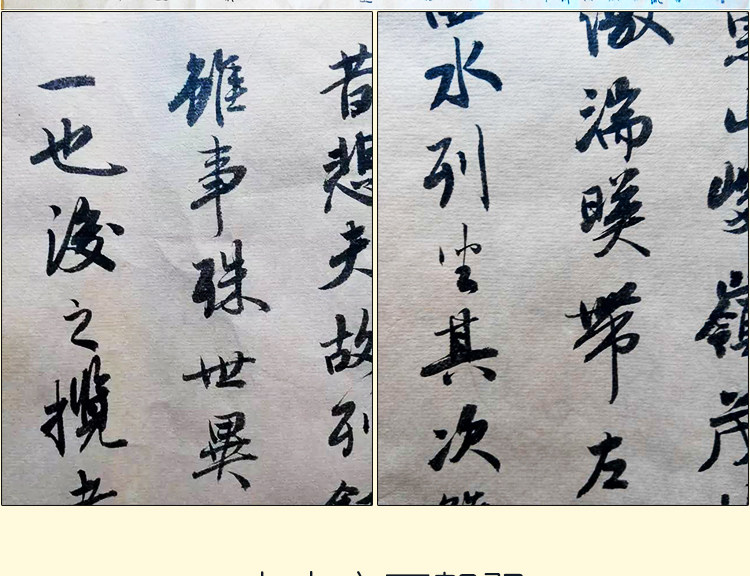 山峻嶺茂
激湍暎帶左
水列坐其次
昔悲夫故列
雖事殊世異
一也後之攬